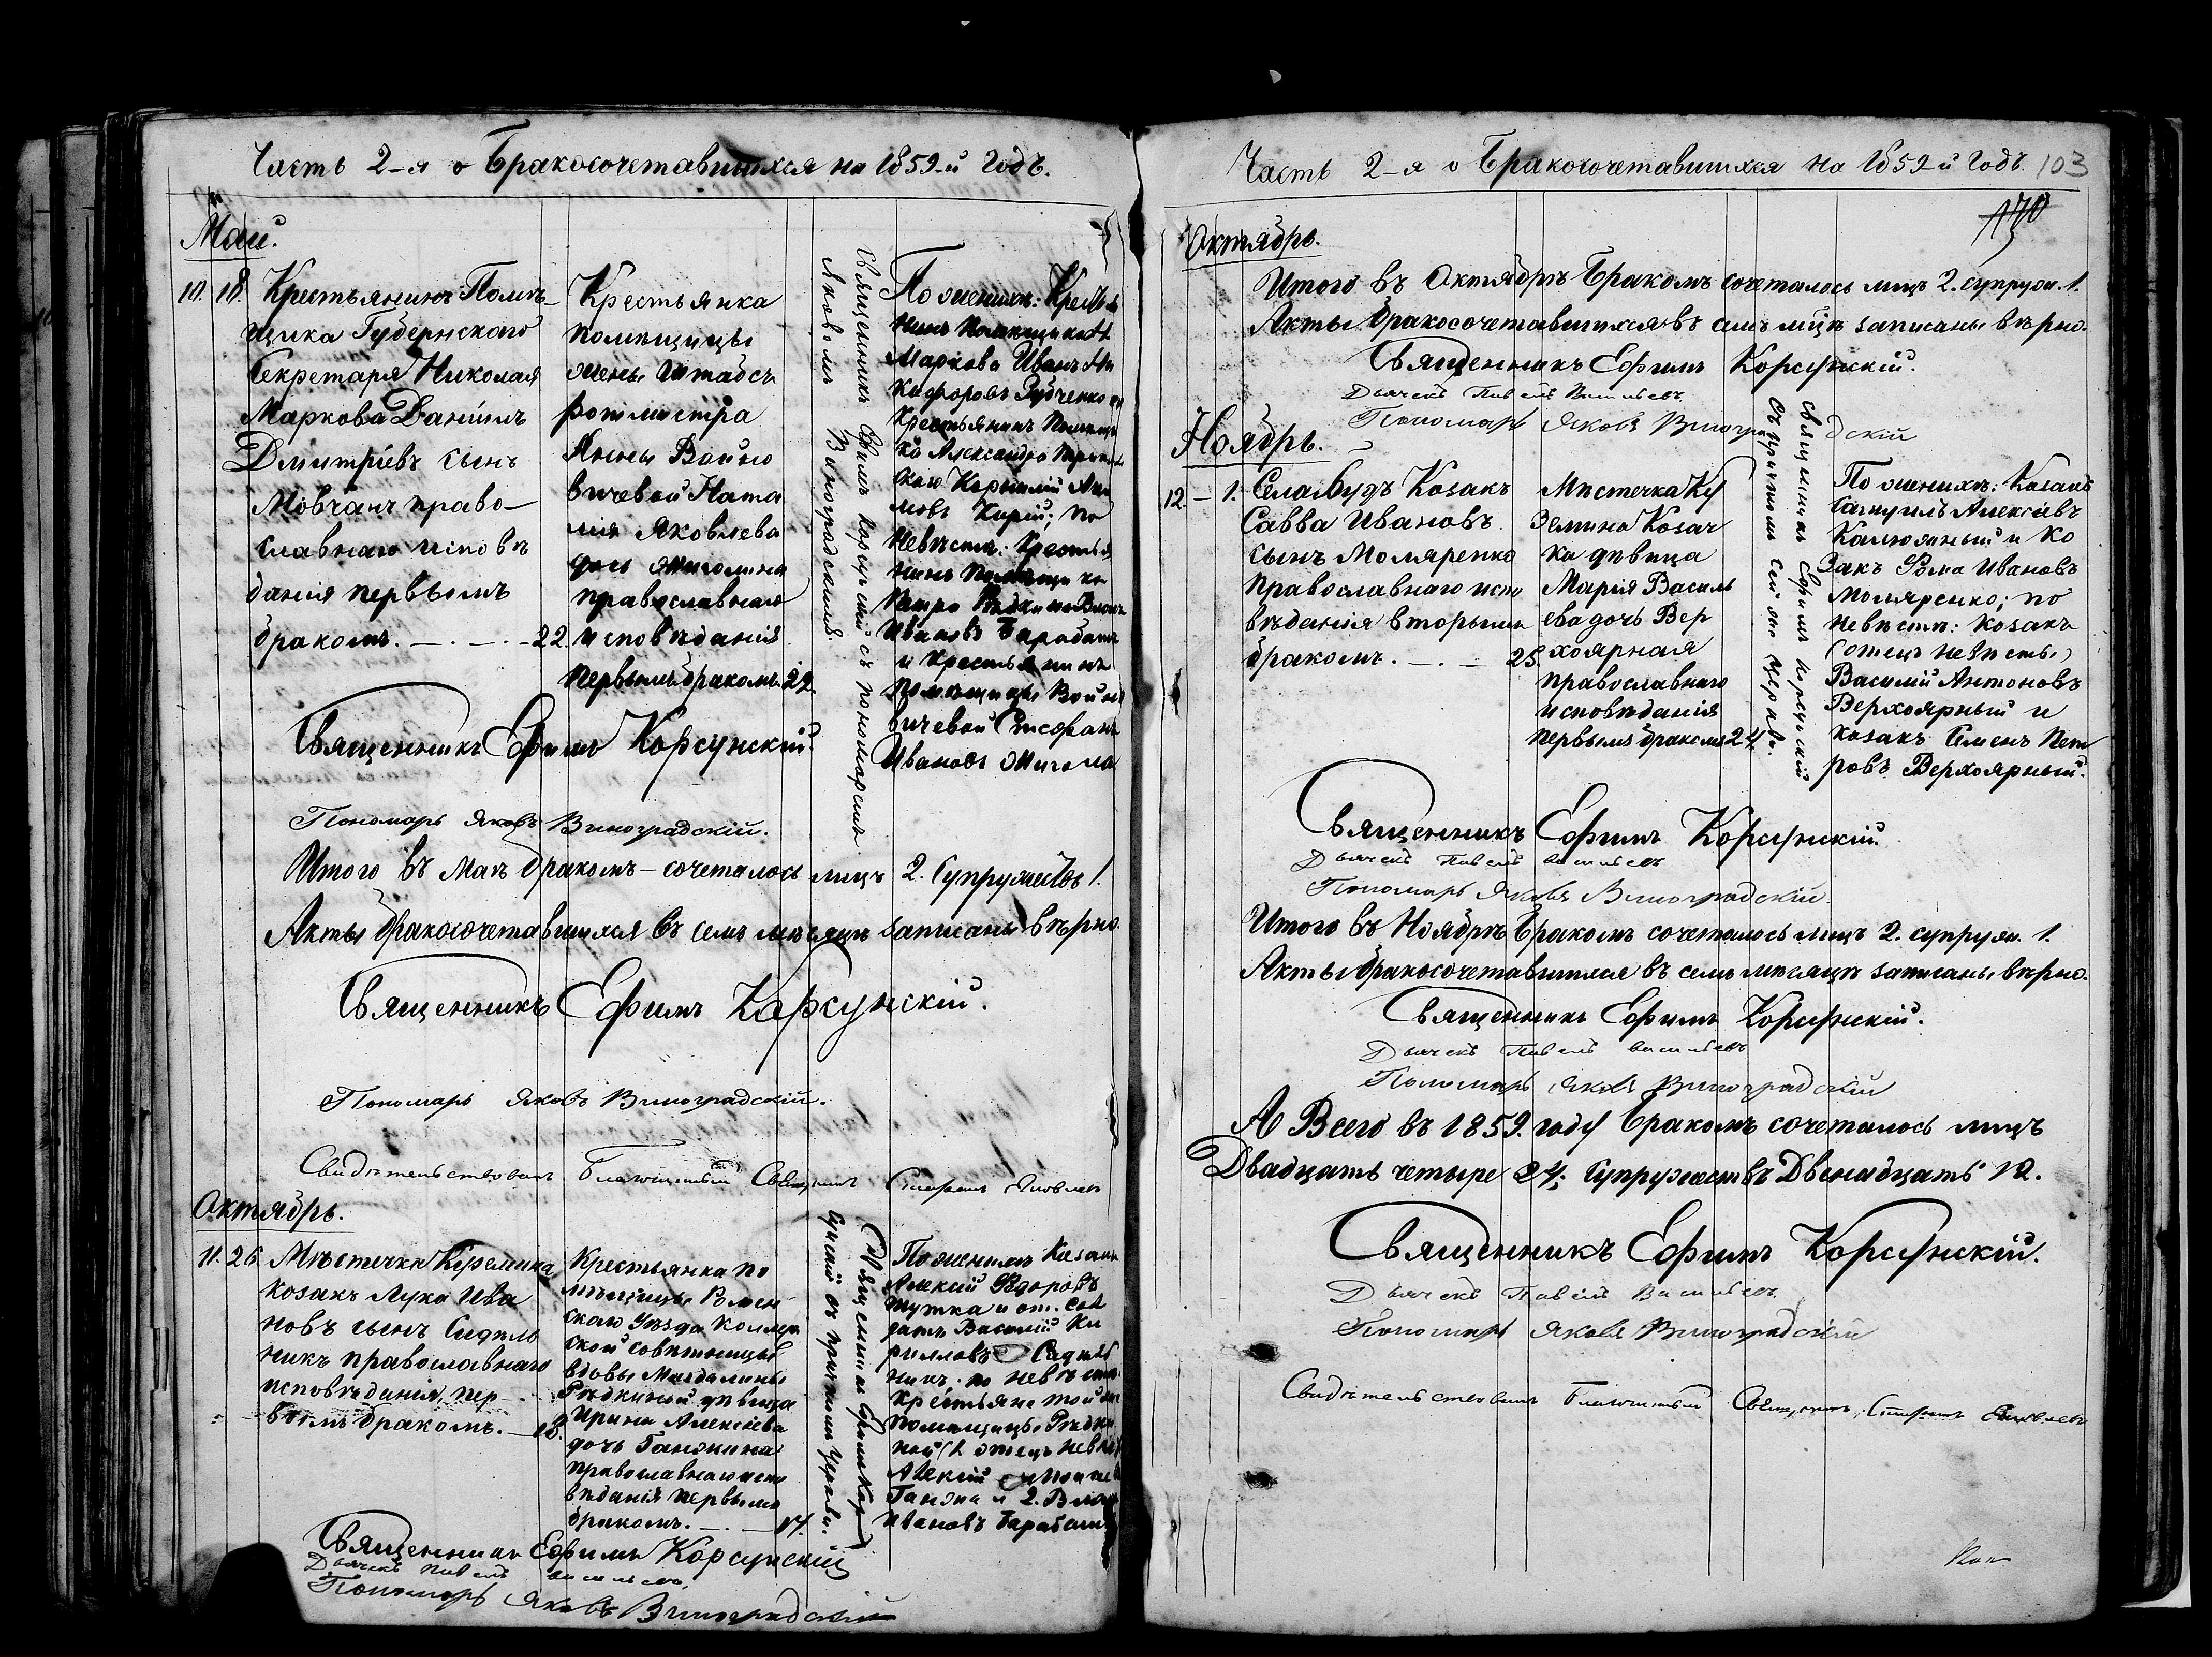 Часть 2-я о Бракосочетавшихся на 1859-й Годъ.
Май.
10. 18. Крестьянинъ Помѣ-
щика Губернскаго
Секретаря Николая
Маркова Даніилъ
Дмитріевъ сынъ
Мовчанъ право-
славнаго исповѣ
данія первымъ
бракомъ. 22.
Крестьянка
помѣщицы
жены Штабсъ
ротмистра
Анны Войно
вичевой Ната
лія Яковлева
дочь
православнаго
исповѣданія
первымъ бракомъ. 22.
Священникъ Ефимъ Корсунскій съ пономаремъ
Яковомъ Виноградскимъ
По женихѣ: Кресть
нинъ помѣщика Н.
Маркова Иванъ Ни
кифоровъ Зубченко и
Крестьянинъ Помѣщи
ка Александра
Корнилій
по
Невѣстѣ: Крестья
нинъ помѣщика
Петра
Ивановъ Барабашъ
и Крестьянинъ
помѣщицы Войно
вичевой
Ивановъ
Священникъ Ефимъ Корсунскій.
Пономарь Яковъ Виноградскій.
Итого въ Маѣ бракомъ сочеталось лицъ 2. Супружествъ 1.
Акты бракосочетавшихся въ семъ мѣсяцѣ записаны вѣрно.
Священникъ Ефимъ Корсунскій.
Пономарь Яковъ Виноградскій.
Свидѣтельствовалъ Благочинный Священникъ Яковлевъ
Октябрь.
11. 26. Мѣстечка Куземина
козакъ Лука Ива
новъ сынъ Сидѣль
никъ православнаго
исповѣданія, пер-
вымъ бракомъ. 18.
Крестьянка по
мѣщицы Ромен
скаго Уѣзда Коллеж
ской совѣтницы
вдовы Магдалины
Рѣдкиной дѣвица
Ирина Алексіева
дочь Ганжина
православнаго испо
вѣданія первымъ
бракомъ. 17.
Священникъ Ефимъ Кор
сунскій съ причтомъ Церкви.
По женихѣ Козакъ
Алексій Ѳедоровъ
и от. сол
датъ Василій Ки
рилловъ Сидѣль
никъ. по невѣстѣ
крестьяне той же
помѣщицы Рѣдки
ной (1 отецъ невѣс)
Алексій
Ганжа и 2.
Ивановъ Барабашъ
Священникъ Ефимъ Корсунскій
Дьячекъ Павелъ Васильевъ,
Пономарь Яковъ Виноградскій
Часть 2-я о Бракосочетавшихся на 1859-й Годъ. 103
170
Октябрь.
Итого въ Октябрѣ Бракомъ сочеталось лицъ 2. супруж. 1.
Акты бракосочетавшихся въ семъ мѣсяцѣ записаны вѣрно.
Священникъ Ефимъ Корсунскій.
Дьячекъ Павелъ Васильевъ.
Пономарь Яковъ Виноградскій
Ноябрь.
12 - 1. Села Будъ Козакъ
Савва Ивановъ
сынъ Моляренко
православнаго испо
вѣданія вторымъ
бракомъ. 25.
Мѣстечка Ку
земина Козач
ка дѣвица
Марія Василь
ева дочь Вер
хоярная
православнаго
исповѣданія
первымъ бракомъ 24.
Священникъ Ефимъ Корсунскій
съ причтомъ сей же церкви.
По женихѣ: Козакъ
Самуилъ Алексіевъ
Калюжный и Ко
закъ Ѳома Ивановъ
Моляренко; по
невѣстѣ: козакъ
(отецъ невѣсты)
Василій Антоновъ
Верхоярный и
козакъ Семенъ Пет
ровъ Верхоярный.
Священникъ Ефимъ Корсунскій.
Дьячекъ Павелъ Васильевъ
Пономарь Яковъ Виноградскій.
Итого въ Ноябрѣ Бракомъ сочеталось лицъ 2. супруж. 1.
Акты бракосочетавшихся въ семъ мѣсяцѣ записаны вѣрно.
Священникъ Ефимъ Корсунскій.
Дьячекъ Павелъ Васильевъ
Пономарь Яковъ Виноградскій
А Всего въ 1859. году Бракомъ сочеталось лицъ
Двадцать четыре 24; Супружествъ Двенадцать 12.
Священникъ Ефимъ Корсунскій.
Дьячекъ Павелъ Васильевъ
Пономарь Яковъ Виноградскій
Свидѣтельствовалъ Благочинный Священникъ Яковлевъ